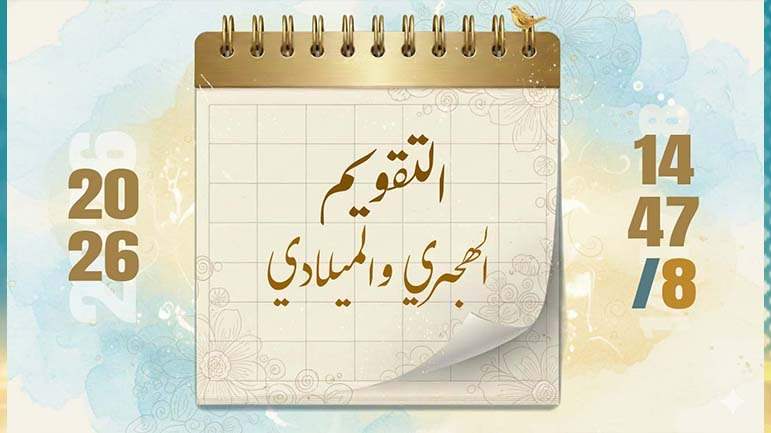 التقويم
الهجري والميلادي
14
47
/8
20
26